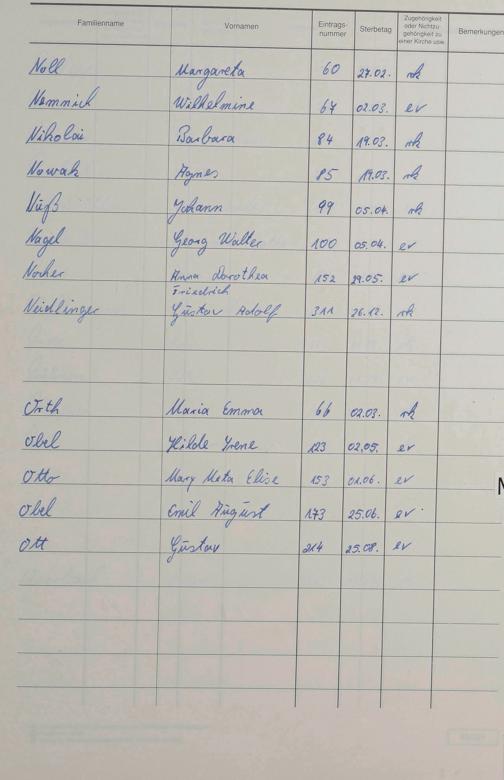 Familienname Vornamen Eintrags-nummer Sterbetag Zugehörigkeit oder Nichtzu-gehörigkeit zu einer Kirche usw. Bemerkungen
Noll Margareta 60 27.02. rk
Nemmich Wilhelmine 67 02.03. ev
Nikolai Barbara 84 19.03. rk
Nowak Agnes 85 19.03. rk
Nuß Johann 99 05.04. rk
Nagel Georg Walter 100 05.04. ev
Nocher Anna Dorothea 152 29.05. ev
Friedrich
Neidlinger Gustav Adolf 311 26.12. rk
Orth Maria Emma 66 02.03. rk
Obel Hilde Irene 123 02.05. ev
Otto Mary Meta Elise 153 01.06. ev
Obel Emil August 173 25.06. ev
Ott Gustav 214 25.08. ev